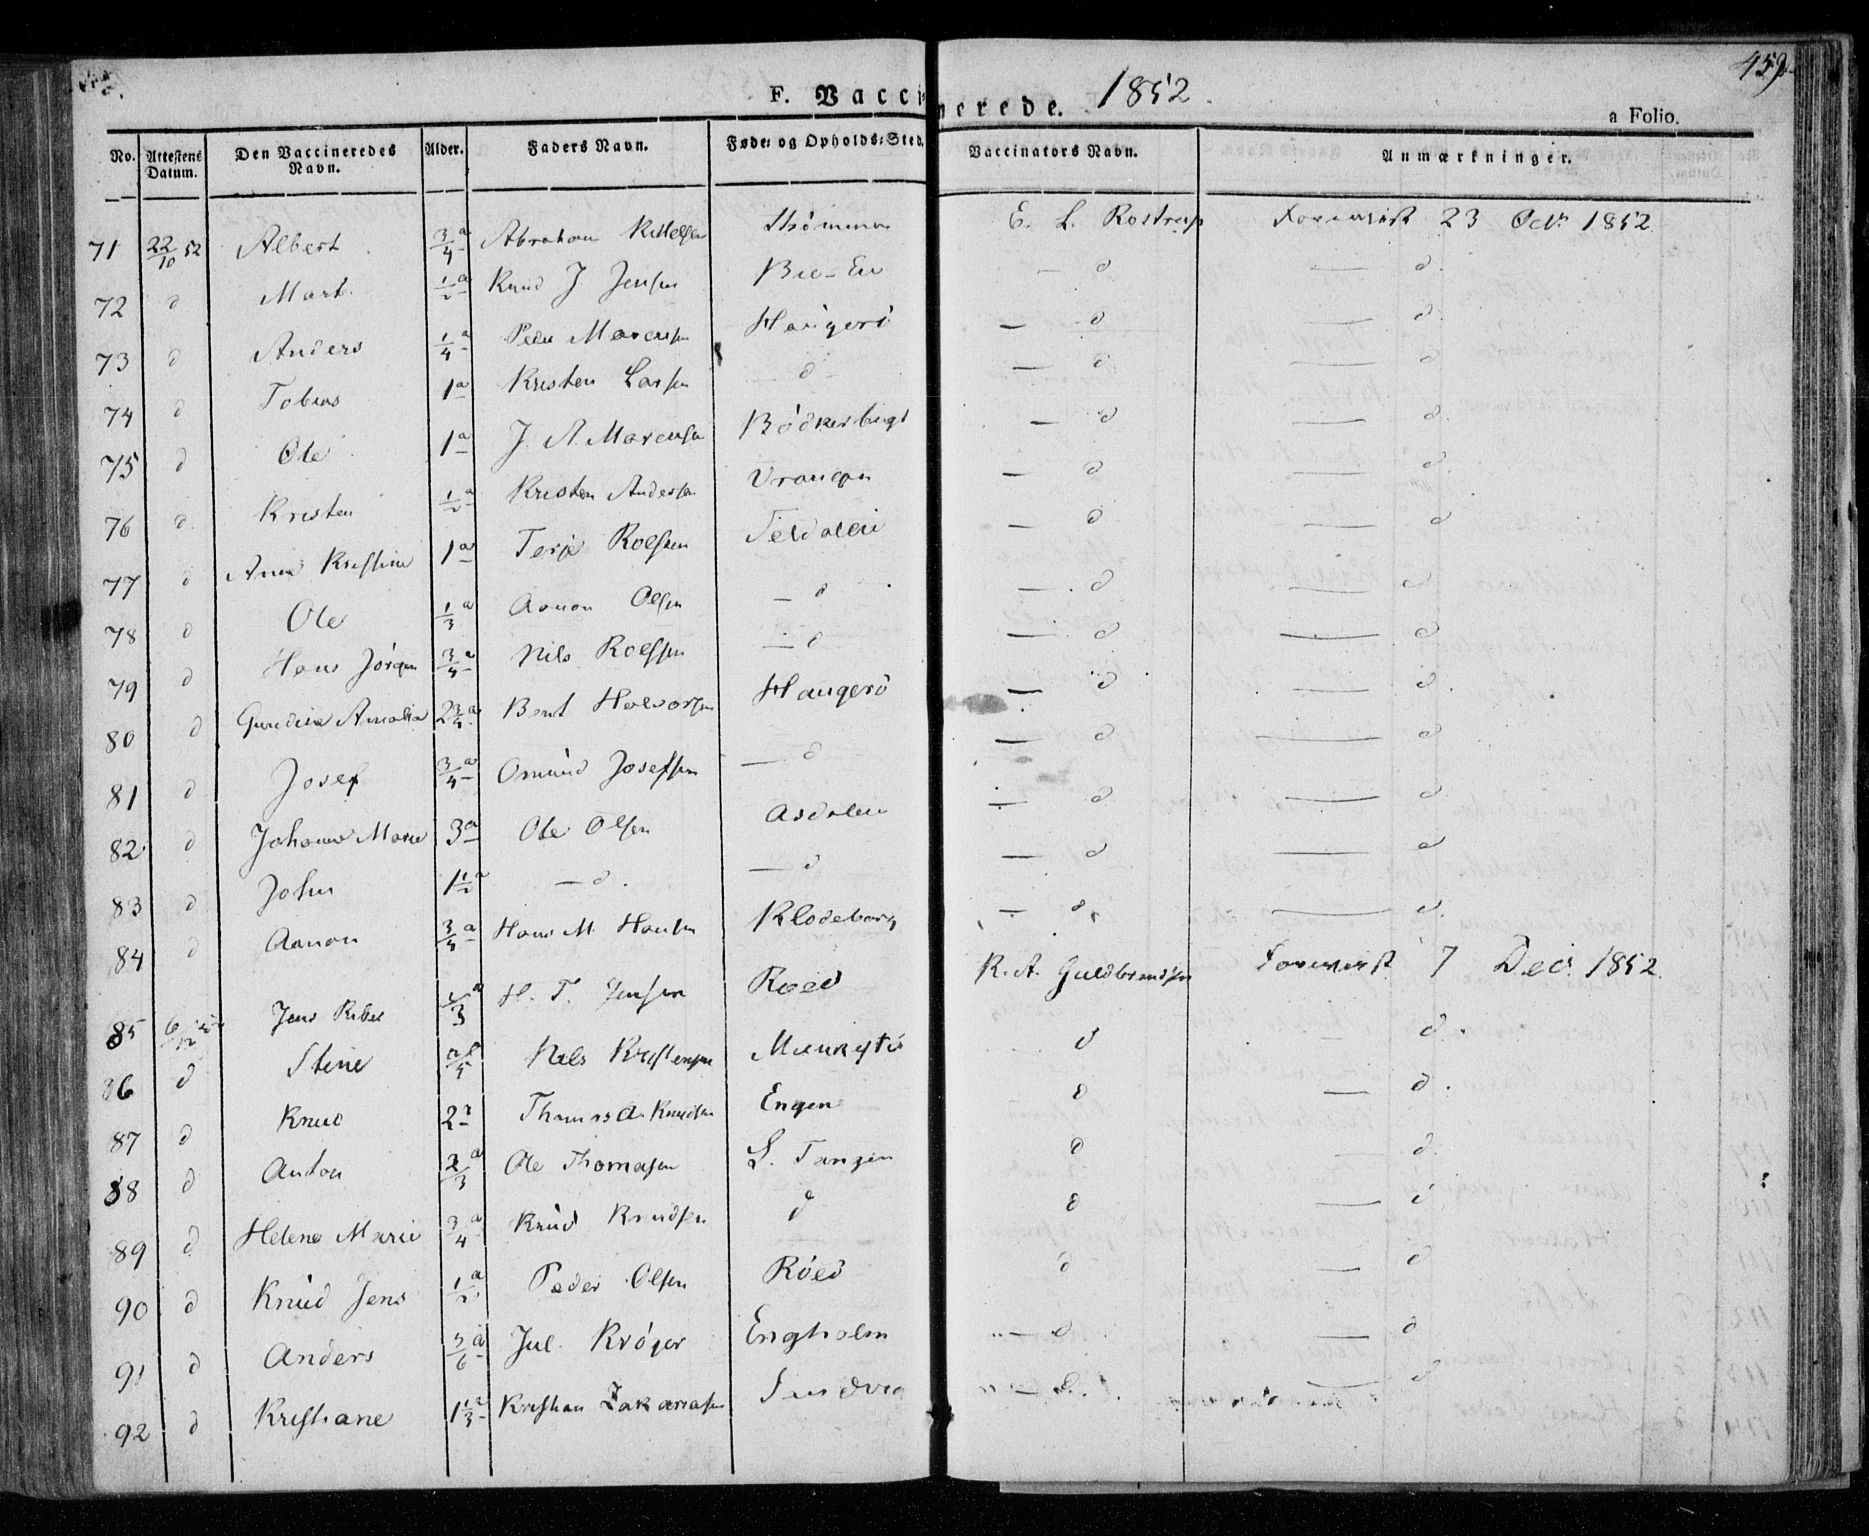 459.
F. Vaccinerede. 1852
a Folio.
No. Attestens Datum. Den Vaccineredes Navn. Alder. Faders Navn. Føde- og Opholds-Sted. Vaccinators Navn. Anmærkninger.
71 22/10 52 Albert 3/4 a Abraham Kittelsen Strömmen E. L. Rostrup Forevist 23 Octr 1852
72 d Mart. 1/2 a Knud J Jensen Bie-Eie — d — d.
73 d Anders 1/4 a Peder Marcusen Haugerö — d — d.
74 d Tobias 1 a Kristen Larsen — d — d — d
75 d Ole 1 a J. A. Marcusen Bödkerbugt — d — d.
76 d. Kristen 1/2 a Kristen Andersen Vrangen — d — d.
77 d Anne Kristine 1 a Terje Roelsen Feldalen — d — d
78 d Ole 1/3 a Aanon Olsen — d — d — d
79 d Hans Jörgen 3/4 a Nils Roelsen — d — d — d
80 d Gundine Amalia 2 3/4 a Bent Halvorsen Haugerö — d — d.
81 d Josef 3/4 a Omund Josefsen — d — d — d
82 d Johanne Marie 3 a Ole Olsen Asdalen — d — d
83 d John 1 1/2 a — d. — d — d — d
84 d Aanon 3/4 a Hans M. Hansen Klodeborg — d — d.
85 6/12 52 Jens Ribe 1/3 a H. T. Jensen Roed K. A. Guldbrandsen Forevist 7 Dec. 1852.
86 d Stine Nils Kristensen d d.
87 d Knud 2 a Thomas A. Knudsen Engene d — d.
88 d Anton 2/3 a Ole Thomasen S. Tangen d — d.
89 d Helene Marie 3/4 a Knud Knudsen d d — d
90 d Knud Jens 1/2 a Peder Olsen Röed d — d
91 d Anders 5/6 a Jul. Kröger Engholm — d — d
92 d Kristiane 1 1/3 a Kristian Zakariasen Sandvig — d. — d